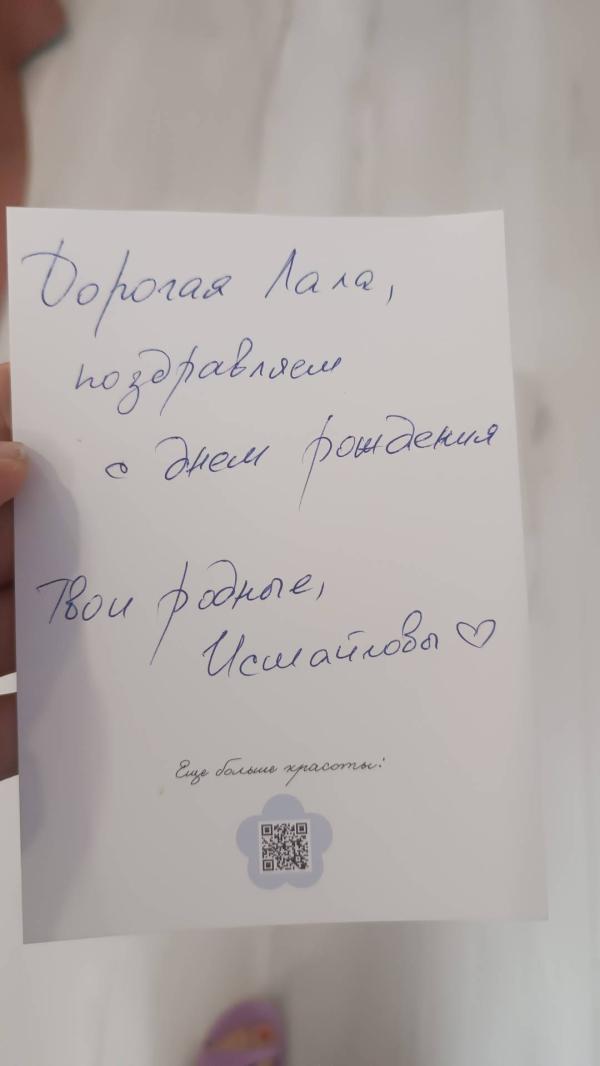 Дорогая Лала,
поздравляем
с днем рождения
Твои родные,
Исмайловы ♡
Еще больше красоты: